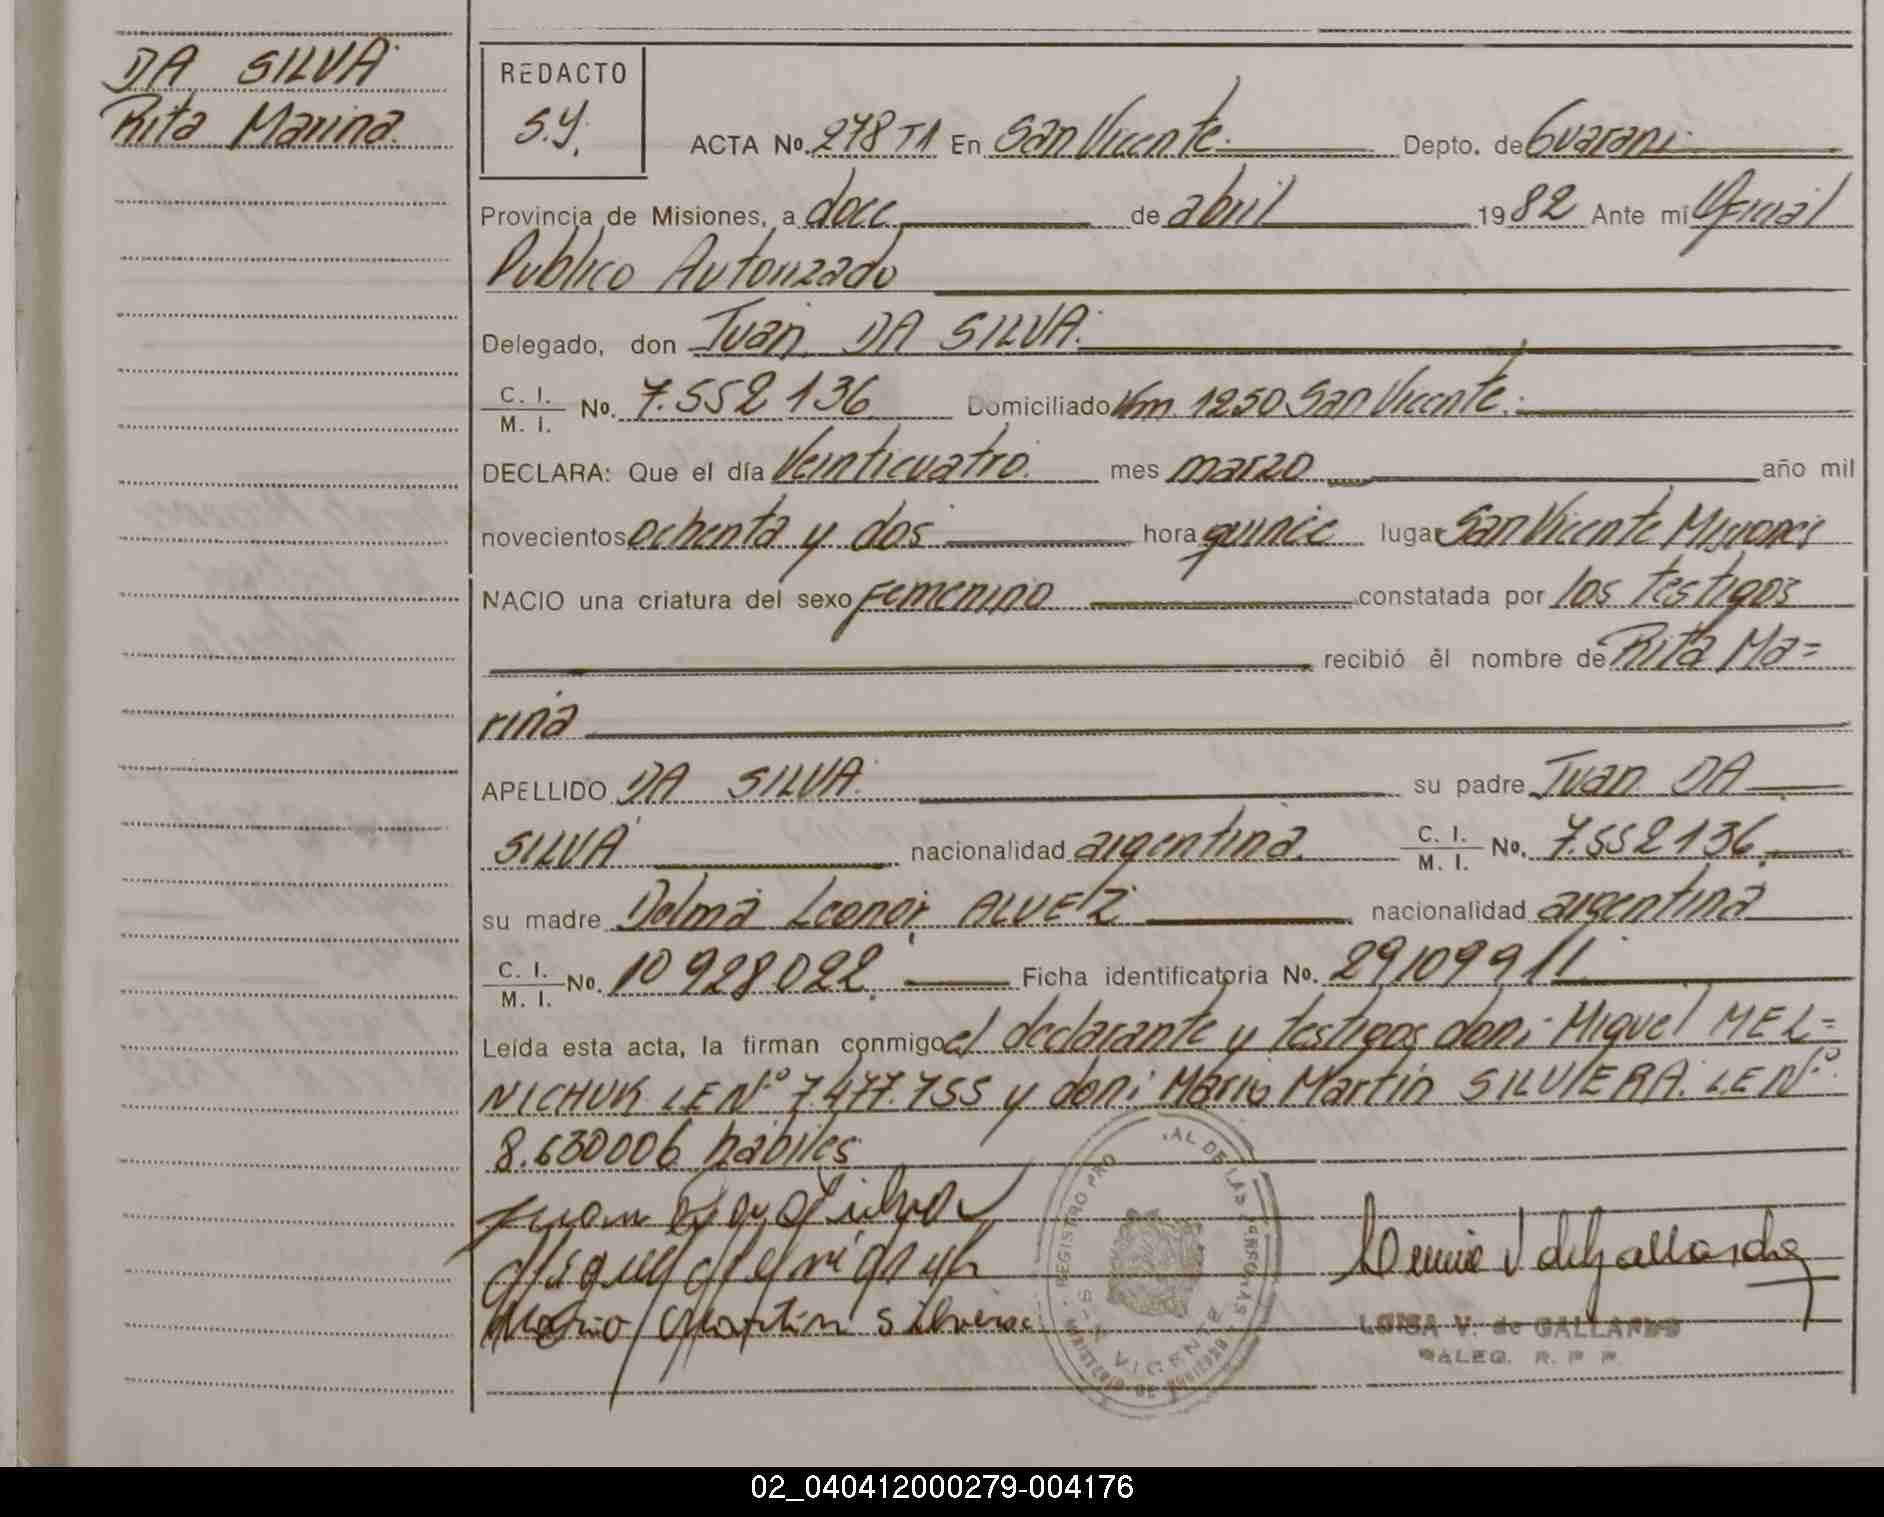 DA SILVA
Rita Marina.
REDACTO
S.Y.
ACTA No. 278 T1 En San Vicente. Depto. de Guarani
Provincia de Misiones, a doce de abril 1982 Ante mi Oficial
Publico Autorizado
Delegado, don Juan DA SILVA.
C. I. / M. I. No. 7.552136 Domiciliado Km 1250 San Vicente.
DECLARA: Que el día Veinticuatro. mes marzo año mil
novecientos ochenta y dos hora quince lugar San Vicente Misiones
NACIO una criatura del sexo Femenino constatada por los testigos
recibió él nombre de Rita Ma=
rina
APELLIDO DA SILVA. su padre Juan DA
SILVA nacionalidad argentina. C. I. / M. I. No. 7.552136.
su madre Delma Leonor ALVEZ nacionalidad argentina
C. I. / M. I. No. 10928022. Ficha identificatoria No. 291099//
Leída esta acta, la firman conmigo el declarante y testigos don: Miguel MEL=
NICHUK LE Nº 7.477.755 y don: Mario Martin SILVIERA. LE Nº
8.630006 habiles
Juan Da Silva
Miguel
Mario Martin Silviera
REGISTRO PRO AL DE LAS PERSONAS
VICENTE
V de Gallardo
LUISA V. de GALLARDO
DALEG. R. P. P.
02_040412000279-004176